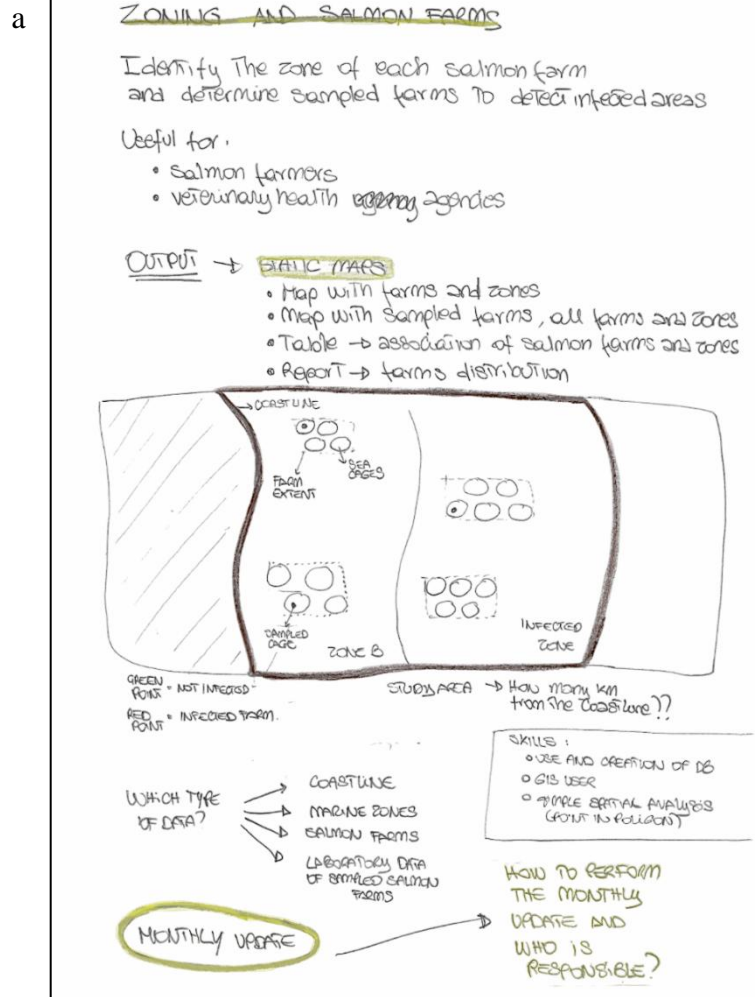 a
ZONING AND SALMON FARMS
Identify the zone of each salmon farm
and determine sampled farms to detect infected areas
Useful for:
• salmon farmers
• veterinary health agencies
OUTPUT → STATIC MAPS
• Map with farms and zones
• Map with sampled farms, all farms and zones
• Table → association of salmon farms and zones
• Report → farms distribution
→ COASTLINE
FARM
EXTENT
SEA
CAGES
SAMPLED
CAGE
ZONE B
INFECTED
ZONE
GREEN
POINT = NOT INFECTED
RED
POINT = INFECTED FARM.
STUDY AREA → How many km
from the coastline??
SKILLS:
• USE AND CREATION OF DB
• GIS USER
• SIMPLE SPATIAL ANALYSIS
(POINT IN POLIGONT)
WHICH TYPE
OF DATA?
COASTLINE
MARINE ZONES
SALMON FARMS
LABORATORY DATA
OF SAMPLED SALMON
FARMS
MONTHLY UPDATE
HOW TO PERFORM
THE MONTHLY
UPDATE AND
WHO IS
RESPONSIBLE?